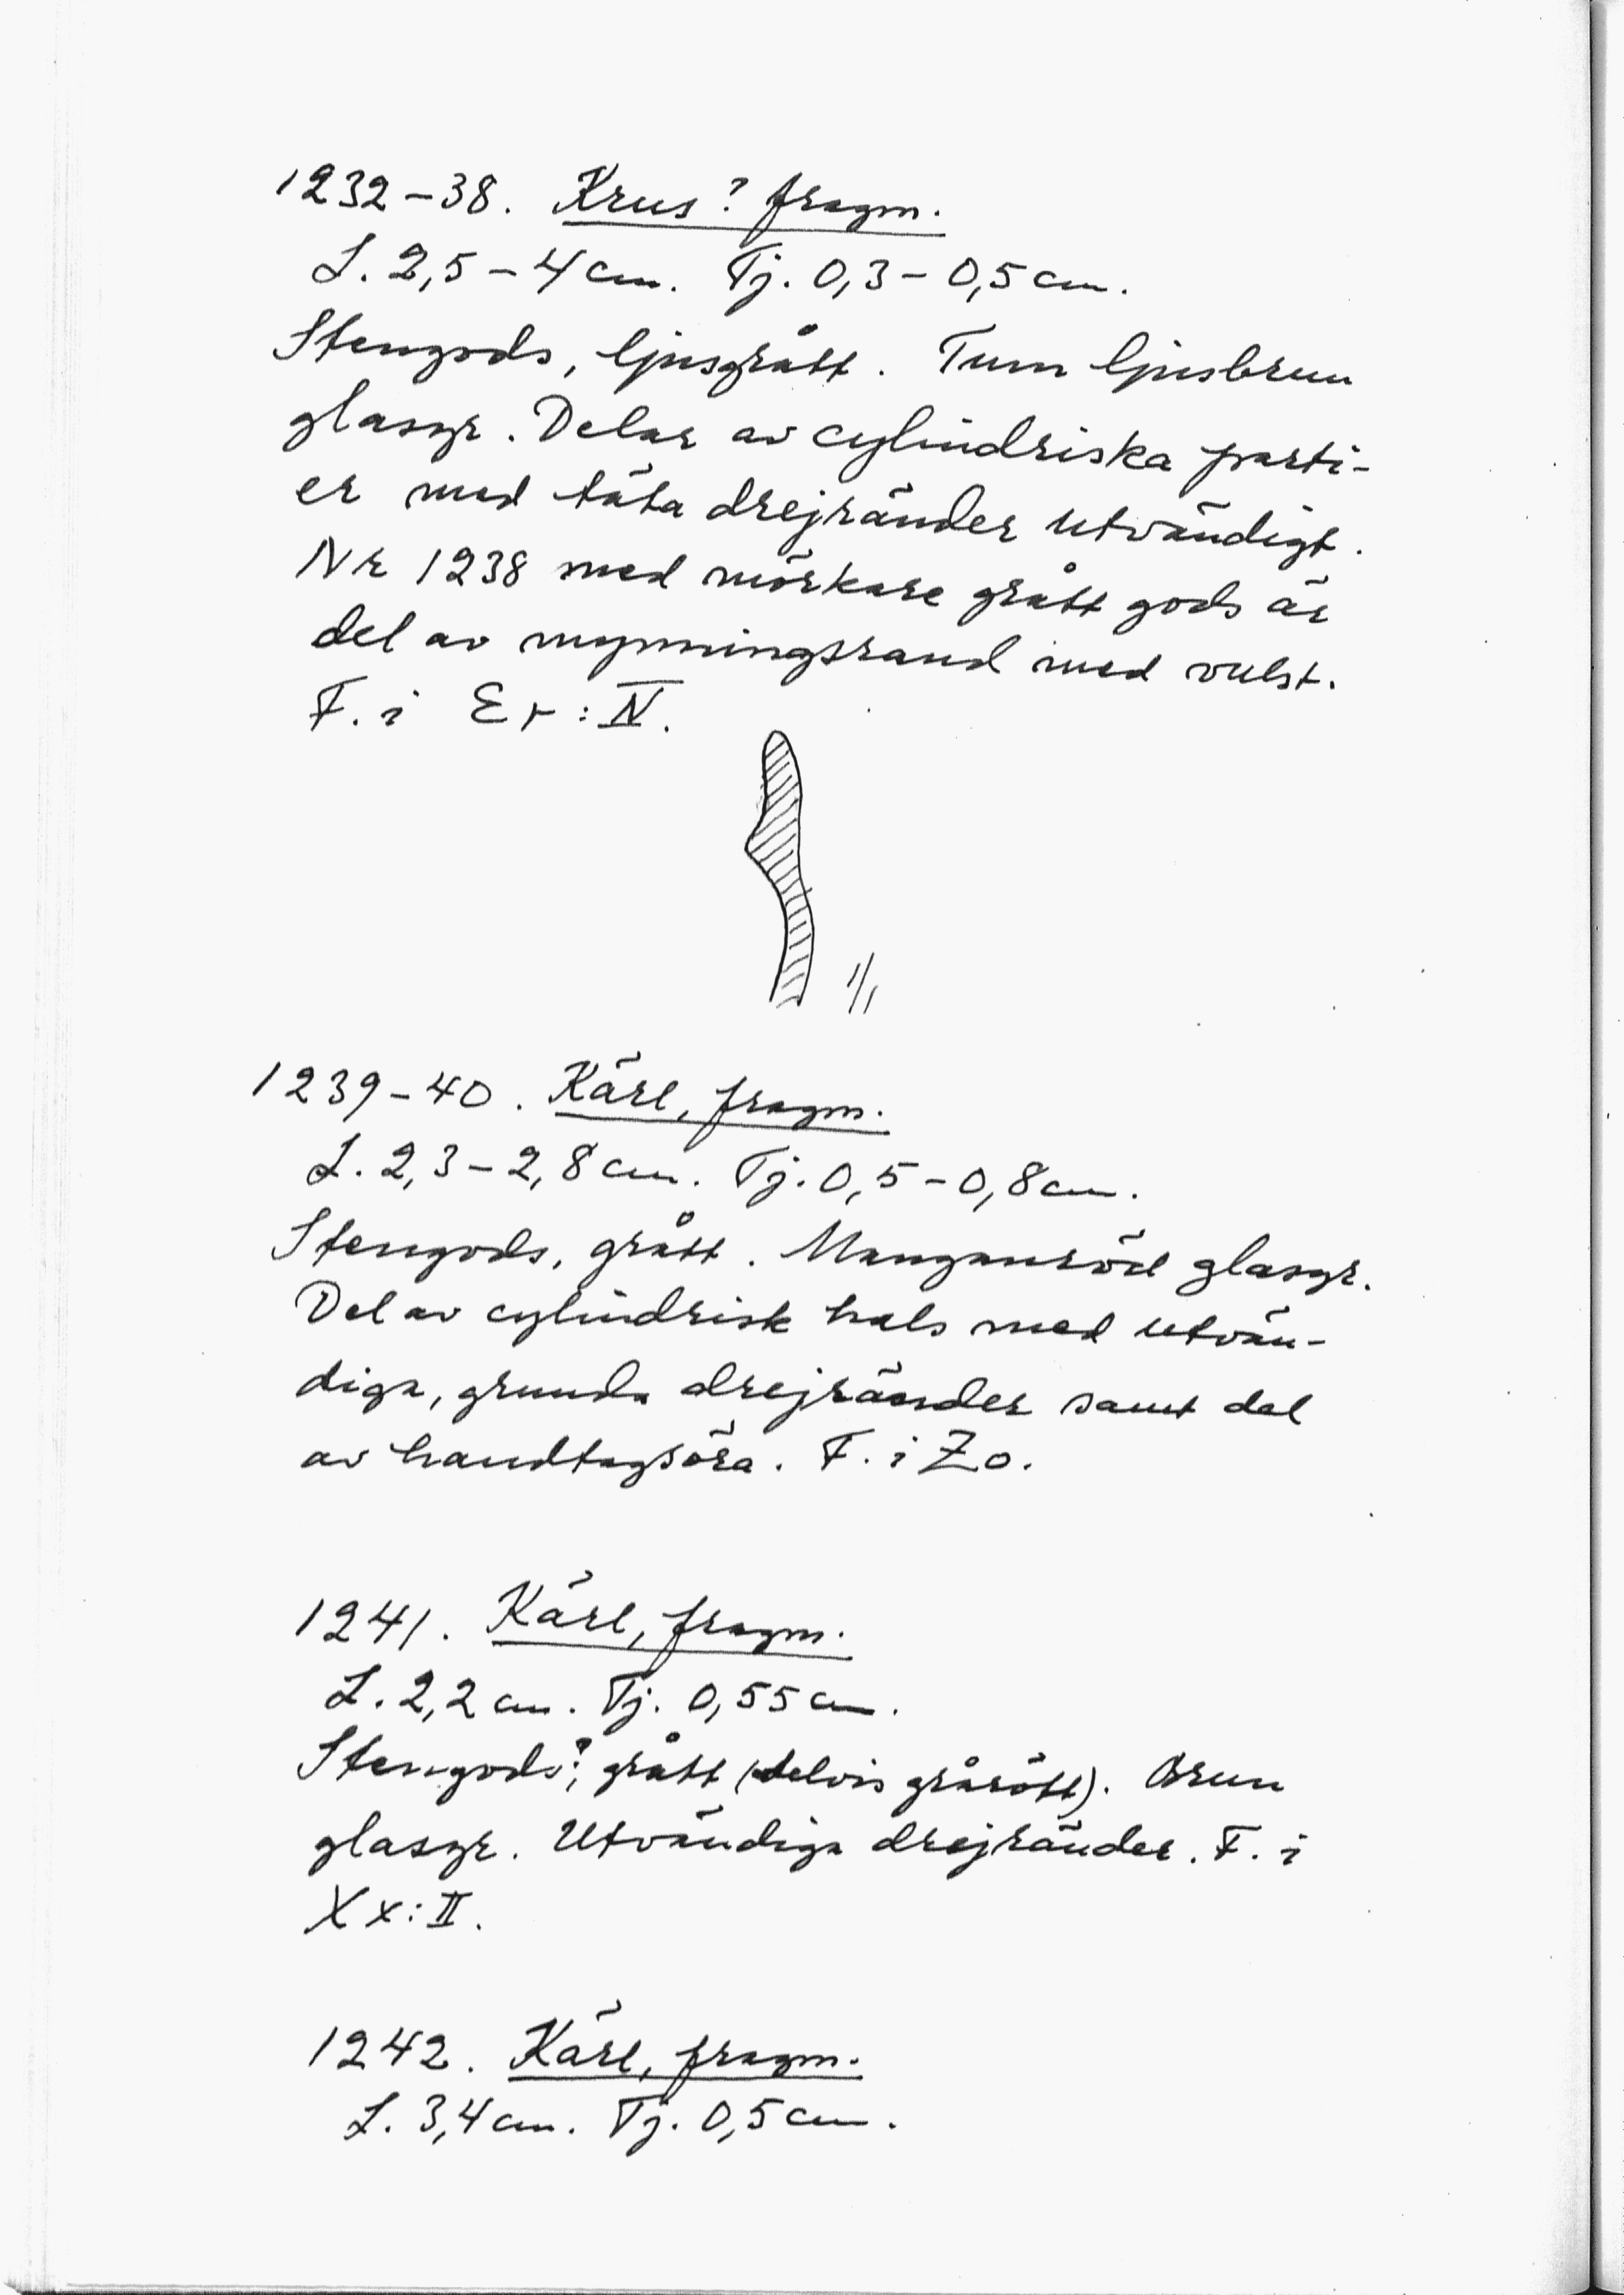 1232–38. Krus? fragm.
L. 2,5 – 4 cm. Tj. 0,3 – 0,5 cm.
Stengods, ljusgrått. Tunn ljusbrun
glasyr. Delar av cylindriska parti-
er med täta drejränder utvändigt.
Nr 1238 med mörkare grått gods är
del av mynningsrand med vulst.
F. i Er: IV.
1/1
1239–40. Kärl, fragm.
L. 2,3 – 2,8 cm. Tj. 0,5 – 0,8 cm.
Stengods, grått. Manganröd glasyr.
Del av cylindrisk hals med utvän-
diga, grunda drejränder samt del
av handtagsöra. F. i Zo.
1241. Kärl, fragm.
L. 2,2 cm. Tj. 0,55 cm.
Stengods?, grått (delvis grårött). Brun
glasyr. Utvändiga drejränder. F. i
Xx: II.
1242. Kärl, fragm.
L. 3,4 cm. Tj. 0,5 cm.